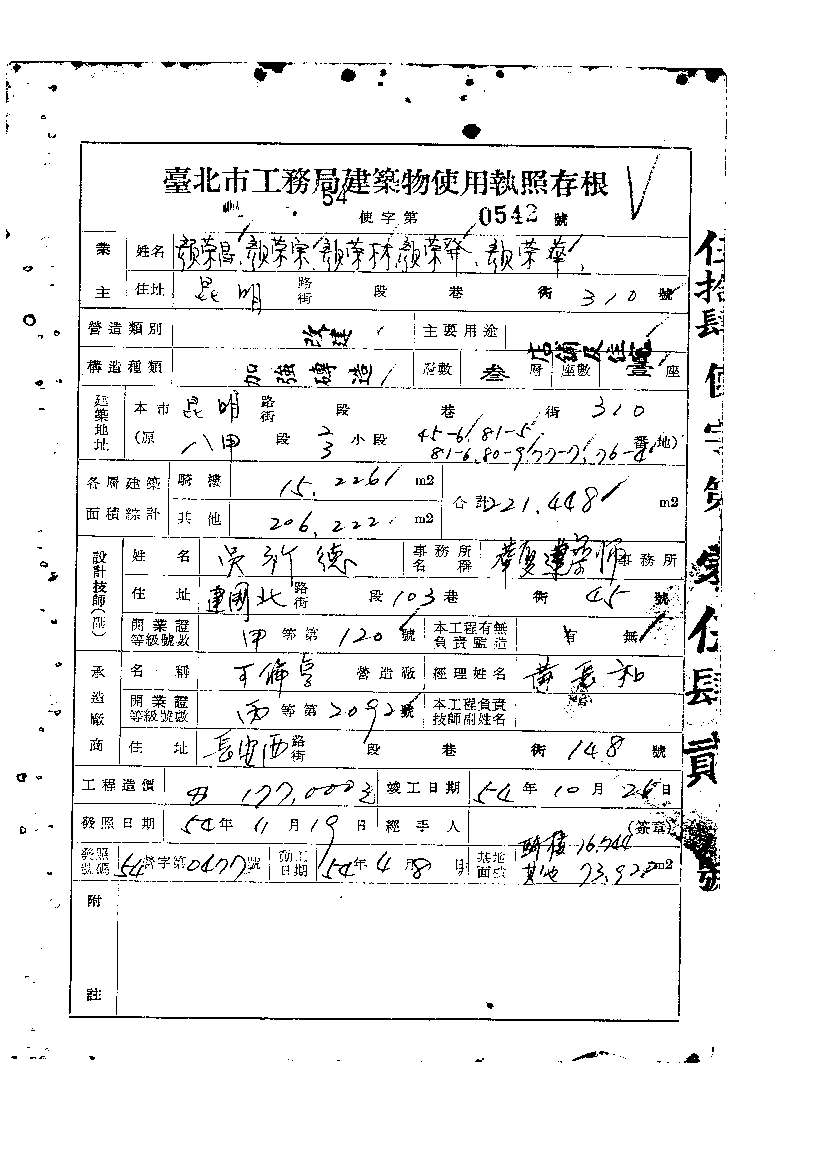 臺北市工務局建築物使用執照存根
54 使字第 0542 號
業主 姓名 顏榮昌、顏榮宗、顏榮林、顏榮發、顏榮華
住址 昆明 路街 段 巷 衖 310 號
營造類別 改建 主要用途 店舖及住宅
構造種類 加強磚造 層數 叁層 座數 壹座
建築地址 本市 昆明 路街 段 巷 衖 310
(原 八甲 段 2/3 小段 45-6, 81-5, 81-6, 80-9, 77-7, 76-4 番地)
各層建築面積綜計 騎樓 15.226 m2 合計 221.448 m2
其他 206.222 m2
設計技師(師) 姓名 吳 德 事務所名稱 華夏建築師事務所
住址 建國北 路街 段 103 巷 衖 45 號
開業證等級號數 甲 等第 120 號 本工程有無負責監造 有 無
承造廠商 名稱 營造廠 經理姓名 黃 和
開業證等級號數 丙 等第 2092 號 本工程負責技師副姓名
住址 長安西 路街 段 巷 衖 148 號
工程造價 177,000元 竣工日期 54 年 10 月 26 日
發照日期 54 年 11 月 19 日 經手人 (簽章)
發照號碼 54 營字第 0477 號 動工日期 54 年 4 月 8 日 基地面積 騎樓 16.744 其他 73.92 m2
附註
伍拾肆使字第零伍肆貳號